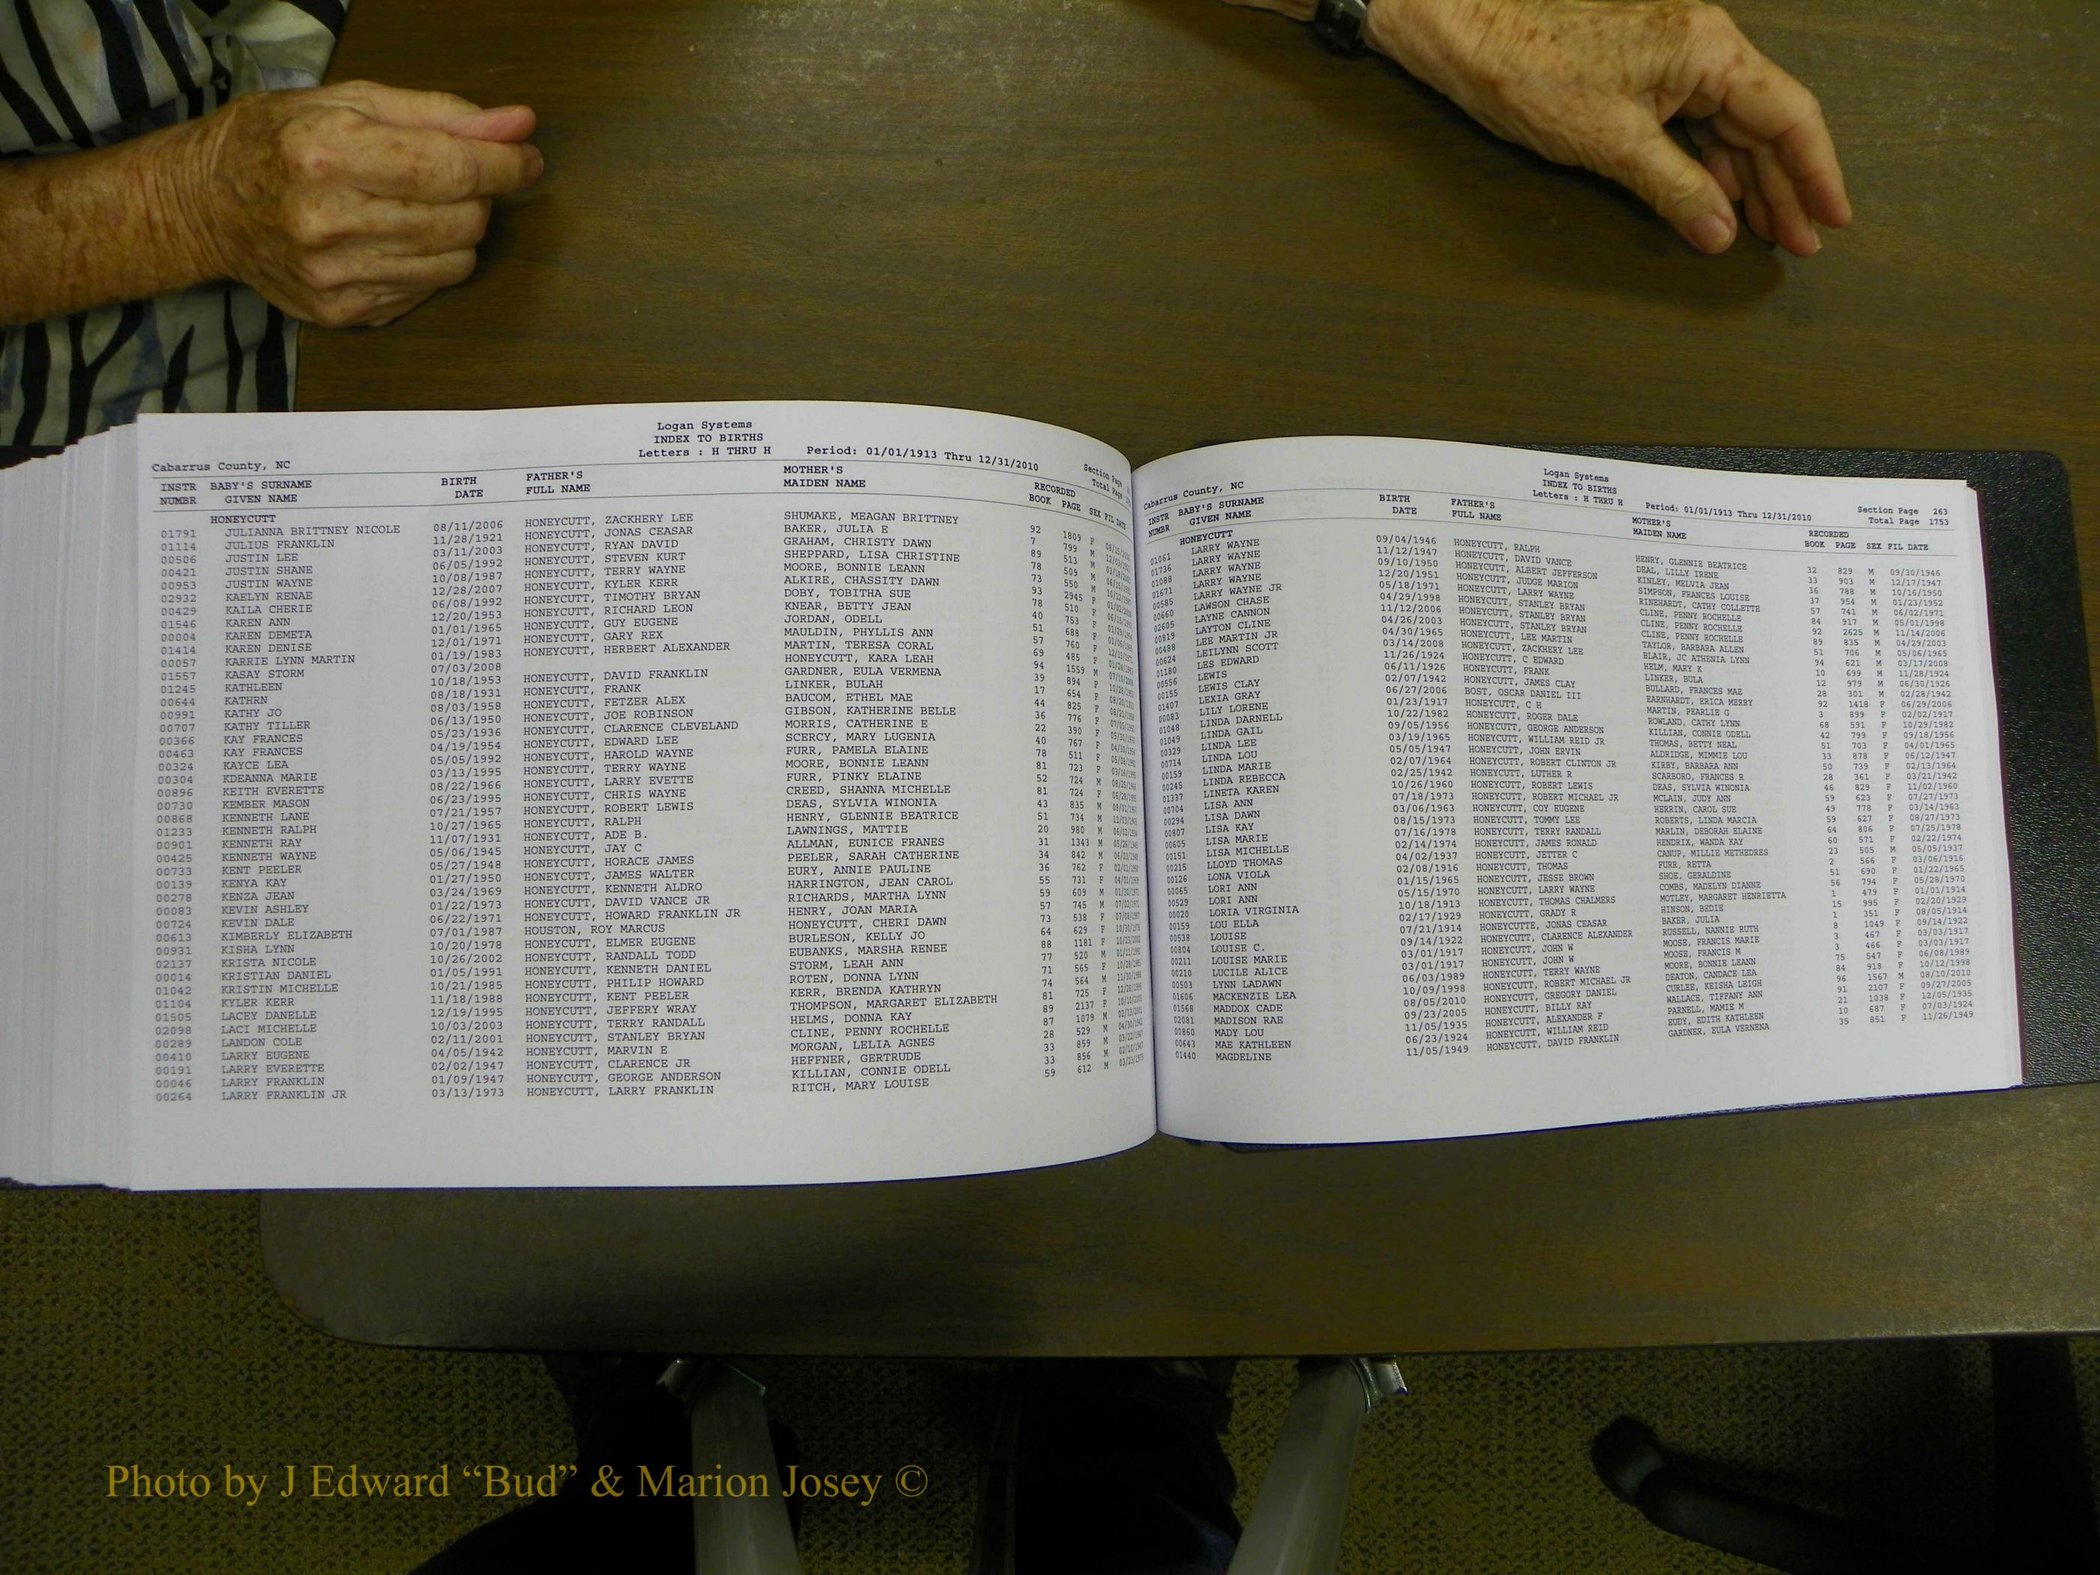 Logan Systems
INDEX TO BIRTHS
Cabarrus County, NC Letters : H THRU H Period: 01/01/1913 Thru 12/31/2010 Section Page
Total Page
INSTR BABY'S SURNAME BIRTH FATHER'S MOTHER'S RECORDED
NUMBR GIVEN NAME DATE FULL NAME MAIDEN NAME BOOK PAGE SEX FIL DATE
HONEYCUTT
01791 JULIANNA BRITTNEY NICOLE 08/11/2006 HONEYCUTT, ZACKHERY LEE SHUMAKE, MEAGAN BRITTNEY 92 1809 F
01114 JULIUS FRANKLIN 11/28/1921 HONEYCUTT, JONAS CEASAR BAKER, JULIA E 7 799 M
00506 JUSTIN LEE 03/11/2003 HONEYCUTT, RYAN DAVID GRAHAM, CHRISTY DAWN 89 513 M
00421 JUSTIN SHANE 06/05/1992 HONEYCUTT, STEVEN KURT SHEPPARD, LISA CHRISTINE 78 509 M
00953 JUSTIN WAYNE 10/08/1987 HONEYCUTT, TERRY WAYNE MOORE, BONNIE LEANN 73 550 M
02932 KAELYN RENAE 12/28/2007 HONEYCUTT, KYLER KERR ALKIRE, CHASSITY DAWN 93 2945 F
00429 KAILA CHERIE 06/08/1992 HONEYCUTT, TIMOTHY BRYAN DOBY, TOBITHA SUE 78 510 F
01546 KAREN ANN 12/20/1953 HONEYCUTT, RICHARD LEON KNEAR, BETTY JEAN 40 753 F
00004 KAREN DEMETA 01/01/1965 HONEYCUTT, GUY EUGENE JORDAN, ODELL 51 688 F
01414 KAREN DENISE 12/01/1971 HONEYCUTT, GARY REX MAULDIN, PHYLLIS ANN 57 760 F
00057 KARRIE LYNN MARTIN 01/19/1983 HONEYCUTT, HERBERT ALEXANDER MARTIN, TERESA CORAL 69 485 F
01557 KASAY STORM 07/03/2008 HONEYCUTT, KARA LEAH 94 1559 M
01245 KATHLEEN 10/18/1953 HONEYCUTT, DAVID FRANKLIN GARDNER, EULA VERMENA 39 894 F
00644 KATHRN 08/18/1931 HONEYCUTT, FRANK LINKER, BULAH 17 654 F
00991 KATHY JO 08/03/1958 HONEYCUTT, FETZER ALEX BAUCOM, ETHEL MAE 44 825 F
00707 KATHY TILLER 06/13/1950 HONEYCUTT, JOE ROBINSON GIBSON, KATHERINE BELLE 36 776 F
00366 KAY FRANCES 05/23/1936 HONEYCUTT, CLARENCE CLEVELAND MORRIS, CATHERINE E 22 390 F
00463 KAY FRANCES 04/19/1954 HONEYCUTT, EDWARD LEE SCERCY, MARY LUGENIA 40 767 F
00324 KAYCE LEA 05/05/1992 HONEYCUTT, HAROLD WAYNE FURR, PAMELA ELAINE 78 511 F
00304 KDEANNA MARIE 03/13/1995 HONEYCUTT, TERRY WAYNE MOORE, BONNIE LEANN 81 723 F
00896 KEITH EVERETTE 08/22/1966 HONEYCUTT, LARRY EVETTE FURR, PINKY ELAINE 52 724 M
00730 KEMBER MASON 06/23/1995 HONEYCUTT, CHRIS WAYNE CREED, SHANNA MICHELLE 81 724 F
00868 KENNETH LANE 07/21/1957 HONEYCUTT, ROBERT LEWIS DEAS, SYLVIA WINONIA 43 835 M
01233 KENNETH RALPH 10/27/1965 HONEYCUTT, RALPH HENRY, GLENNIE BEATRICE 51 734 M
00901 KENNETH RAY 11/07/1931 HONEYCUTT, ADE B. LAWNINGS, MATTIE 20 980 M
00425 KENNETH WAYNE 05/06/1945 HONEYCUTT, JAY C ALLMAN, EUNICE FRANES 31 1343 M
00733 KENT PEELER 05/27/1948 HONEYCUTT, HORACE JAMES PEELER, SARAH CATHERINE 34 842 M
00139 KENYA KAY 01/27/1950 HONEYCUTT, JAMES WALTER EURY, ANNIE PAULINE 36 762 F
00278 KENZA JEAN 03/24/1969 HONEYCUTT, KENNETH ALDRO HARRINGTON, JEAN CAROL 55 731 F
00083 KEVIN ASHLEY 01/22/1973 HONEYCUTT, DAVID VANCE JR RICHARDS, MARTHA LYNN 59 609 M
00724 KEVIN DALE 06/22/1971 HONEYCUTT, HOWARD FRANKLIN JR HENRY, JOAN MARIA 57 745 M
00613 KIMBERLY ELIZABETH 07/01/1987 HOUSTON, ROY MARCUS HONEYCUTT, CHERI DAWN 73 538 F
00931 KISHA LYNN 10/20/1978 HONEYCUTT, ELMER EUGENE BURLESON, KELLY JO 64 629 F
02137 KRISTA NICOLE 10/26/2002 HONEYCUTT, RANDALL TODD EUBANKS, MARSHA RENEE 88 1181 F
00014 KRISTIAN DANIEL 01/05/1991 HONEYCUTT, KENNETH DANIEL STORM, LEAH ANN 77 520 M
01042 KRISTIN MICHELLE 10/21/1985 HONEYCUTT, PHILIP HOWARD ROTEN, DONNA LYNN 71 565 F
01104 KYLER KERR 11/18/1988 HONEYCUTT, KENT PEELER KERR, BRENDA KATHRYN 74 564 M
01505 LACEY DANELLE 12/19/1995 HONEYCUTT, JEFFERY WRAY THOMPSON, MARGARET ELIZABETH 81 725 F
02098 LACI MICHELLE 10/03/2003 HONEYCUTT, TERRY RANDALL HELMS, DONNA KAY 89 2137 F
00289 LANDON COLE 02/11/2001 HONEYCUTT, STANLEY BRYAN CLINE, PENNY ROCHELLE 87 1079 M
00410 LARRY EUGENE 04/05/1942 HONEYCUTT, MARVIN E MORGAN, LELIA AGNES 28 529 M
00191 LARRY EVERETTE 02/02/1947 HONEYCUTT, CLARENCE JR HEFFNER, GERTRUDE 33 859 M
00046 LARRY FRANKLIN 01/09/1947 HONEYCUTT, GEORGE ANDERSON KILLIAN, CONNIE ODELL 33 856 M
00264 LARRY FRANKLIN JR 03/13/1973 HONEYCUTT, LARRY FRANKLIN RITCH, MARY LOUISE 59 612 M
Logan Systems
INDEX TO BIRTHS
Cabarrus County, NC Letters : H THRU H Period: 01/01/1913 Thru 12/31/2010 Section Page 263
Total Page 1753
INSTR BABY'S SURNAME BIRTH FATHER'S MOTHER'S RECORDED
NUMBR GIVEN NAME DATE FULL NAME MAIDEN NAME BOOK PAGE SEX FIL DATE
HONEYCUTT
01061 LARRY WAYNE 09/04/1946 HONEYCUTT, RALPH HENRY, GLENNIE BEATRICE 32 829 M 09/30/1946
01736 LARRY WAYNE 11/12/1947 HONEYCUTT, DAVID VANCE DEAL, LILLY IRENE 33 903 M 12/17/1947
01088 LARRY WAYNE 09/10/1950 HONEYCUTT, ALBERT JEFFERSON KINLEY, MELVIA JEAN 36 788 M 10/16/1950
01671 LARRY WAYNE 12/20/1951 HONEYCUTT, JUDGE MARION SIMPSON, FRANCES LOUISE 37 954 M 01/23/1952
00585 LARRY WAYNE JR 05/18/1971 HONEYCUTT, LARRY WAYNE RINEHARDT, CATHY COLLETTE 57 741 M 06/02/1971
00660 LAWSON CHASE 04/29/1998 HONEYCUTT, STANLEY BRYAN CLINE, PENNY ROCHELLE 84 917 M 05/01/1998
02605 LAYNE CANNON 11/12/2006 HONEYCUTT, STANLEY BRYAN CLINE, PENNY ROCHELLE 92 2625 M 11/14/2006
00819 LAYTON CLINE 04/26/2003 HONEYCUTT, STANLEY BRYAN CLINE, PENNY ROCHELLE 89 835 M 04/29/2003
00488 LEE MARTIN JR 04/30/1965 HONEYCUTT, LEE MARTIN TAYLOR, BARBARA ALLEN 51 706 M 05/06/1965
00624 LEILYNN SCOTT 03/14/2008 HONEYCUTT, ZACKHERY LEE BLAIR, JC ATHENIA LYNN 94 621 M 03/17/2008
01180 LES EDWARD 11/26/1924 HONEYCUTT, C EDWARD HELM, MARY K 10 699 M 11/28/1924
00556 LEWIS 06/11/1926 HONEYCUTT, FRANK LINKER, BULA 12 979 M 06/30/1926
00155 LEWIS CLAY 02/07/1942 HONEYCUTT, JAMES CLAY BULLARD, FRANCES MAE 28 301 M 02/28/1942
01407 LEXIA GRAY 06/27/2006 BOST, OSCAR DANIEL III EARNHARDT, ERICA MERRY 92 1418 F 06/29/2006
00083 LILY LORENE 01/23/1917 HONEYCUTT, C H MARTIN, PEARLIE G 3 899 F 02/02/1917
01048 LINDA DARNELL 10/22/1982 HONEYCUTT, ROGER DALE ROWLAND, CATHY LYNN 68 591 F 10/29/1982
01049 LINDA GAIL 09/05/1956 HONEYCUTT, GEORGE ANDERSON KILLIAN, CONNIE ODELL 42 799 F 09/18/1956
00329 LINDA LEE 03/19/1965 HONEYCUTT, WILLIAM REID JR THOMAS, BETTY NEAL 51 703 F 04/01/1965
00714 LINDA LOU 05/05/1947 HONEYCUTT, JOHN ERVIN ALDRIDGE, MIMMIE LOU 33 878 F 06/12/1947
00159 LINDA MARIE 02/07/1964 HONEYCUTT, ROBERT CLINTON JR KIRBY, BARBARA ANN 50 739 F 02/13/1964
00245 LINDA REBECCA 02/25/1942 HONEYCUTT, LUTHER R SCARBORO, FRANCES R 28 361 F 03/21/1942
01337 LINETA KAREN 10/26/1960 HONEYCUTT, ROBERT LEWIS DEAS, SYLVIA WINONIA 46 829 F 11/02/1960
00704 LISA ANN 07/18/1973 HONEYCUTT, ROBERT MICHAEL JR MCLAIN, JUDY ANN 59 623 F 07/27/1973
00294 LISA DAWN 03/06/1963 HONEYCUTT, COY EUGENE HERRIN, CAROL SUE 49 778 F 03/14/1963
00807 LISA KAY 08/15/1973 HONEYCUTT, TOMMY LEE ROBERTS, LINDA MARCIA 59 627 F 08/27/1973
00605 LISA MARIE 07/16/1978 HONEYCUTT, TERRY RANDALL MARLIN, DEBORAH ELAINE 64 806 F 07/25/1978
00151 LISA MICHELLE 02/14/1974 HONEYCUTT, JAMES RONALD HENDRIX, WANDA KAY 60 571 F 02/22/1974
00215 LLOYD THOMAS 04/02/1937 HONEYCUTT, JETTER C CANUP, MILLIE METHEDRES 23 505 M 05/05/1937
00126 LONA VIOLA 02/08/1916 HONEYCUTT, THOMAS FURR, RETTA 2 566 F 03/06/1916
00065 LORI ANN 01/15/1965 HONEYCUTT, JESSE BROWN SHOE, GERALDINE 51 690 F 01/22/1965
00529 LORI ANN 05/15/1970 HONEYCUTT, LARRY WAYNE COMBS, MADELYN DIANNE 56 794 F 05/28/1970
00020 LORIA VIRGINIA 10/18/1913 HONEYCUTT, THOMAS CHALMERS MOTLEY, MARGARET HENRIETTA 1 479 F 01/01/1914
00159 LOU ELLA 02/17/1929 HONEYCUTT, GRADY R HINSON, BEDIE 15 995 F 02/20/1929
00538 LOUISE 07/21/1914 HONEYCUTTE, JONAS CEASAR BAKER, JULIA 1 351 F 08/05/1914
00804 LOUISE C. 09/14/1922 HONEYCUTT, CLARENCE ALEXANDER RUSSELL, NANNIE RUTH 8 1049 F 09/14/1922
00211 LOUISE MARIE 03/01/1917 HONEYCUTT, JOHN W MOOSE, FRANCIS MARIE 3 467 F 03/03/1917
00210 LUCILE ALICE 03/01/1917 HONEYCUTT, JOHN W MOOSE, FRANCIS M 3 466 F 03/03/1917
00503 LYNN LADAWN 06/03/1989 HONEYCUTT, TERRY WAYNE MOORE, BONNIE LEANN 75 547 F 06/08/1989
01606 MACKENZIE LEA 10/09/1998 HONEYCUTT, ROBERT MICHAEL JR DEATON, CANDACE LEA 84 918 F 10/12/1998
01568 MADDOX CADE 08/05/2010 HONEYCUTT, GREGORY DANIEL CURLEE, KEISHA LEIGH 96 1567 M 08/10/2010
02081 MADISON RAE 09/23/2005 HONEYCUTT, BILLY RAY WALLACE, TIFFANY ANN 91 2107 F 09/27/2005
00860 MADY LOU 11/05/1935 HONEYCUTT, ALEXANDER F PARNELL, MAMIE M 21 1038 F 12/05/1935
00643 MAE KATHLEEN 06/23/1924 HONEYCUTT, WILLIAM REID EUDY, EDITH KATHLEEN 10 687 F 07/03/1924
01440 MAGDELINE 11/05/1949 HONEYCUTT, DAVID FRANKLIN GARDNER, EULA VERNENA 35 851 F 11/26/1949
Photo by J Edward “Bud” & Marion Josey ©